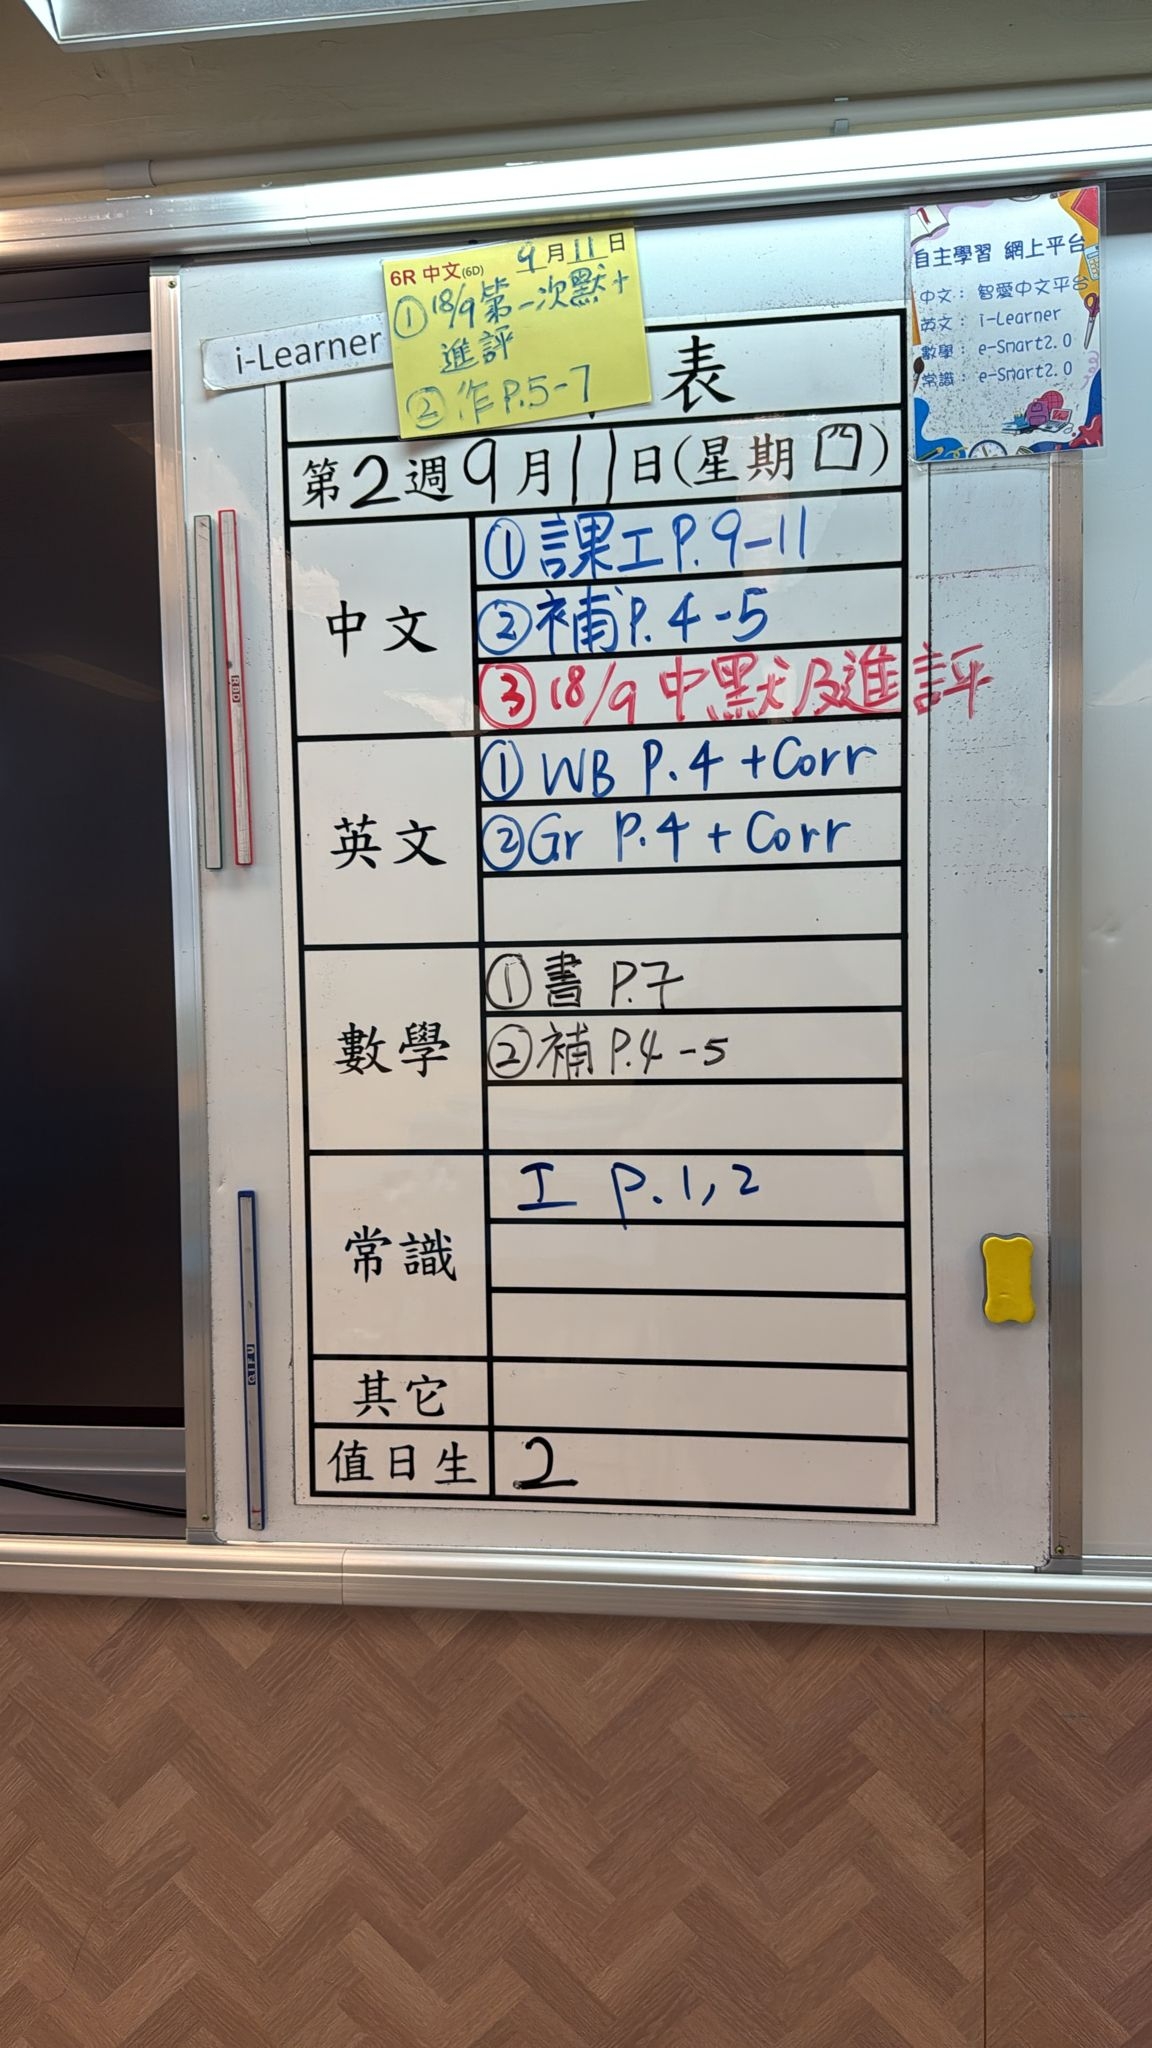 6R 中文(6D) 9月11日
① 18/9 第一次默+
進評
② 作P.5-7
i-Learner
表
自主學習 網上平台
中文：智愛中文平台
英文：i-Learner
數學：e-Smart2.0
常識：e-Smart2.0
第2週9月11日(星期四)
中文
① 課工P.9-11
② 補P.4-5
③ 18/9 中默及進評
英文
① WB P.4 +Corr
② Gr P.4 + Corr
數學
① 書 P.7
② 補P.4-5
常識
工 p.1,2
其它
值日生 2